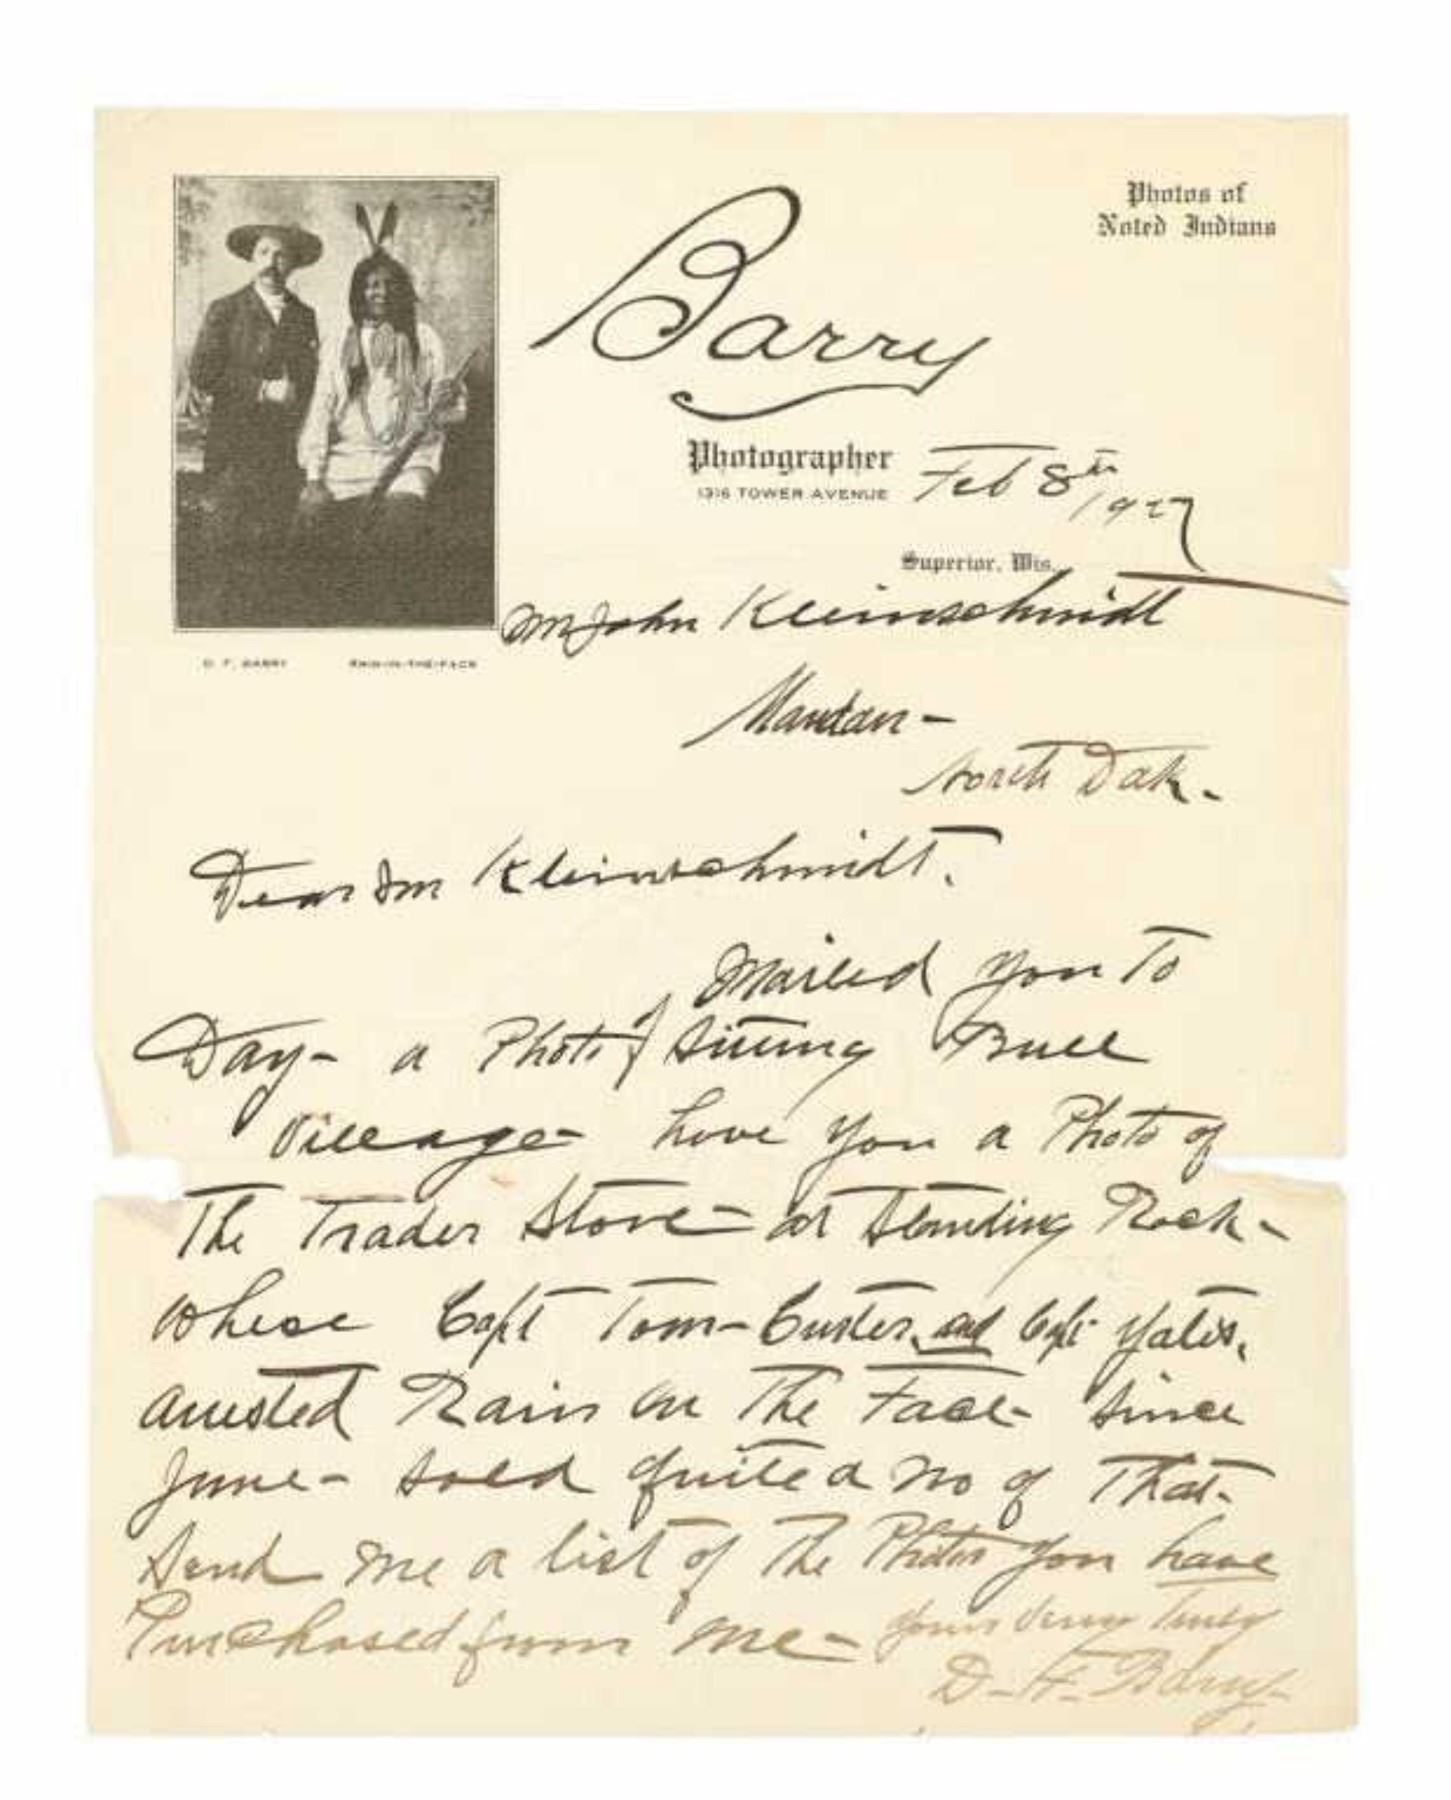 Photos of
Noted Indians
Barry
Photographer
1316 TOWER AVENUE
Feb 8th 1927
Superior, Wis.
Mr John Kleinschmidt
Mandan -
North Dak -
D. F. BARRY RAIN-IN-THE-FACE
Dear Mr Kleinschmidt.
Mailed you To
Day - a Photo of Sitting Bull
Village - have you a Photo of
The Trader Store - at Standing Rock -
where Capt Tom - Custer, and Capt Yates,
arrested Rain on The Face - Since
June - sold quite a no of That -
Send me a list of The Photos you have
Purchased from me - yours very Truly
D - F - Barry -